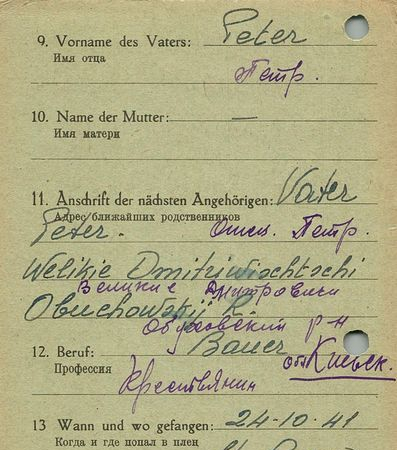 9. Vorname des Vaters: Peter
Имя отца
Петр.
10. Name der Mutter: —
Имя матери
11. Anschrift der nächsten Angehörigen: Vater
Адрес ближайших родственников
Peter. Отец Петр.
Welikie Dmitriwischtschi
Великие Дмитровичи
Obuchowskij R.
Обуховский р-н
12. Beruf: Bauer обл Киевск.
Профессия
Крестьянин
13 Wann und wo gefangen: 24-10-41
Когда и где попал в плен